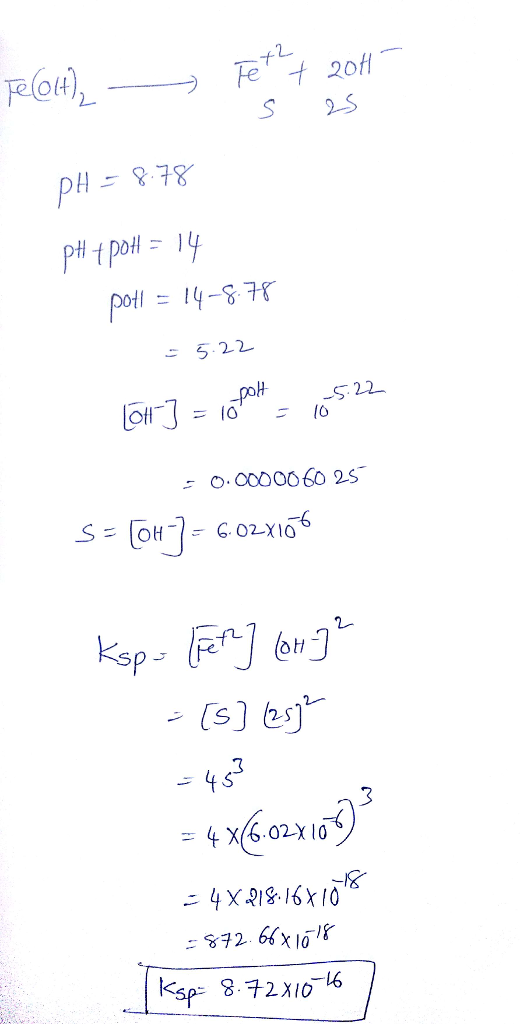 Fe(OH)₂ ⟶ Fe⁺² + 2OH⁻
S 2S
pH = 8.78
pH + pOH = 14
pOH = 14-8.78
= 5.22
[OH⁻] = 10⁻ᵖᴼᴴ = 10⁻⁵·²²
= 0.000006025
S = [OH⁻] = 6.02X10⁻⁶
Ksp = [Fe⁺²] [OH⁻]²
= [S] [2S]²
= 4S³
= 4X(6.02X10⁻⁶)³
= 4X218.16X10⁻¹⁸
= 872.66X10⁻¹⁸
Ksp = 8.72X10⁻¹⁶